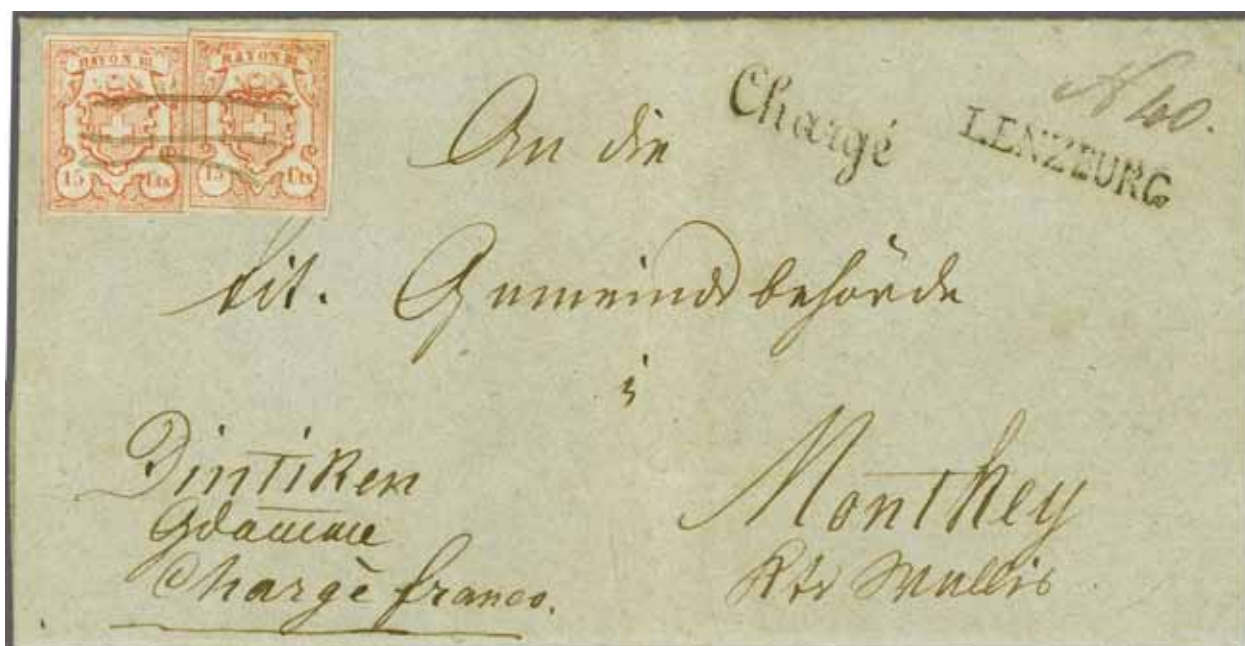 RAYON III. RAYON III.
15 Cts 15 Cts
Chargé
LENZBURG
N 40.
An die
tit. Gemeindsbehörde
i
Monthey
Kts Wallis
Dintiken
Gdamme
Chargè franco.